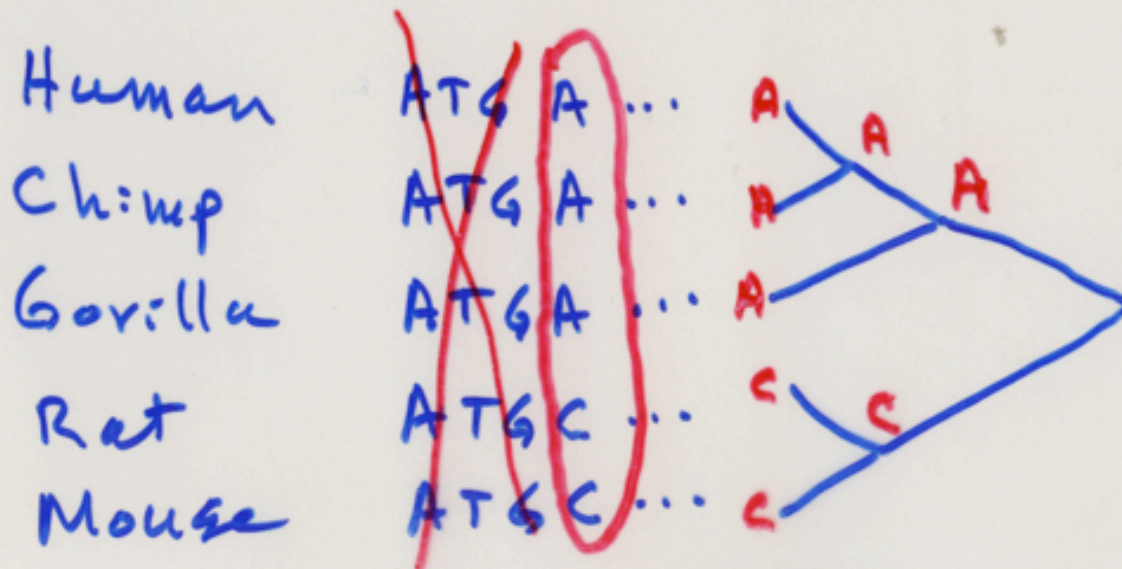 Human ATG A ... A A
Chimp ATG A ... A A
Gorilla ATG A ... A
Rat ATG C ... C C
Mouse ATG C ... C